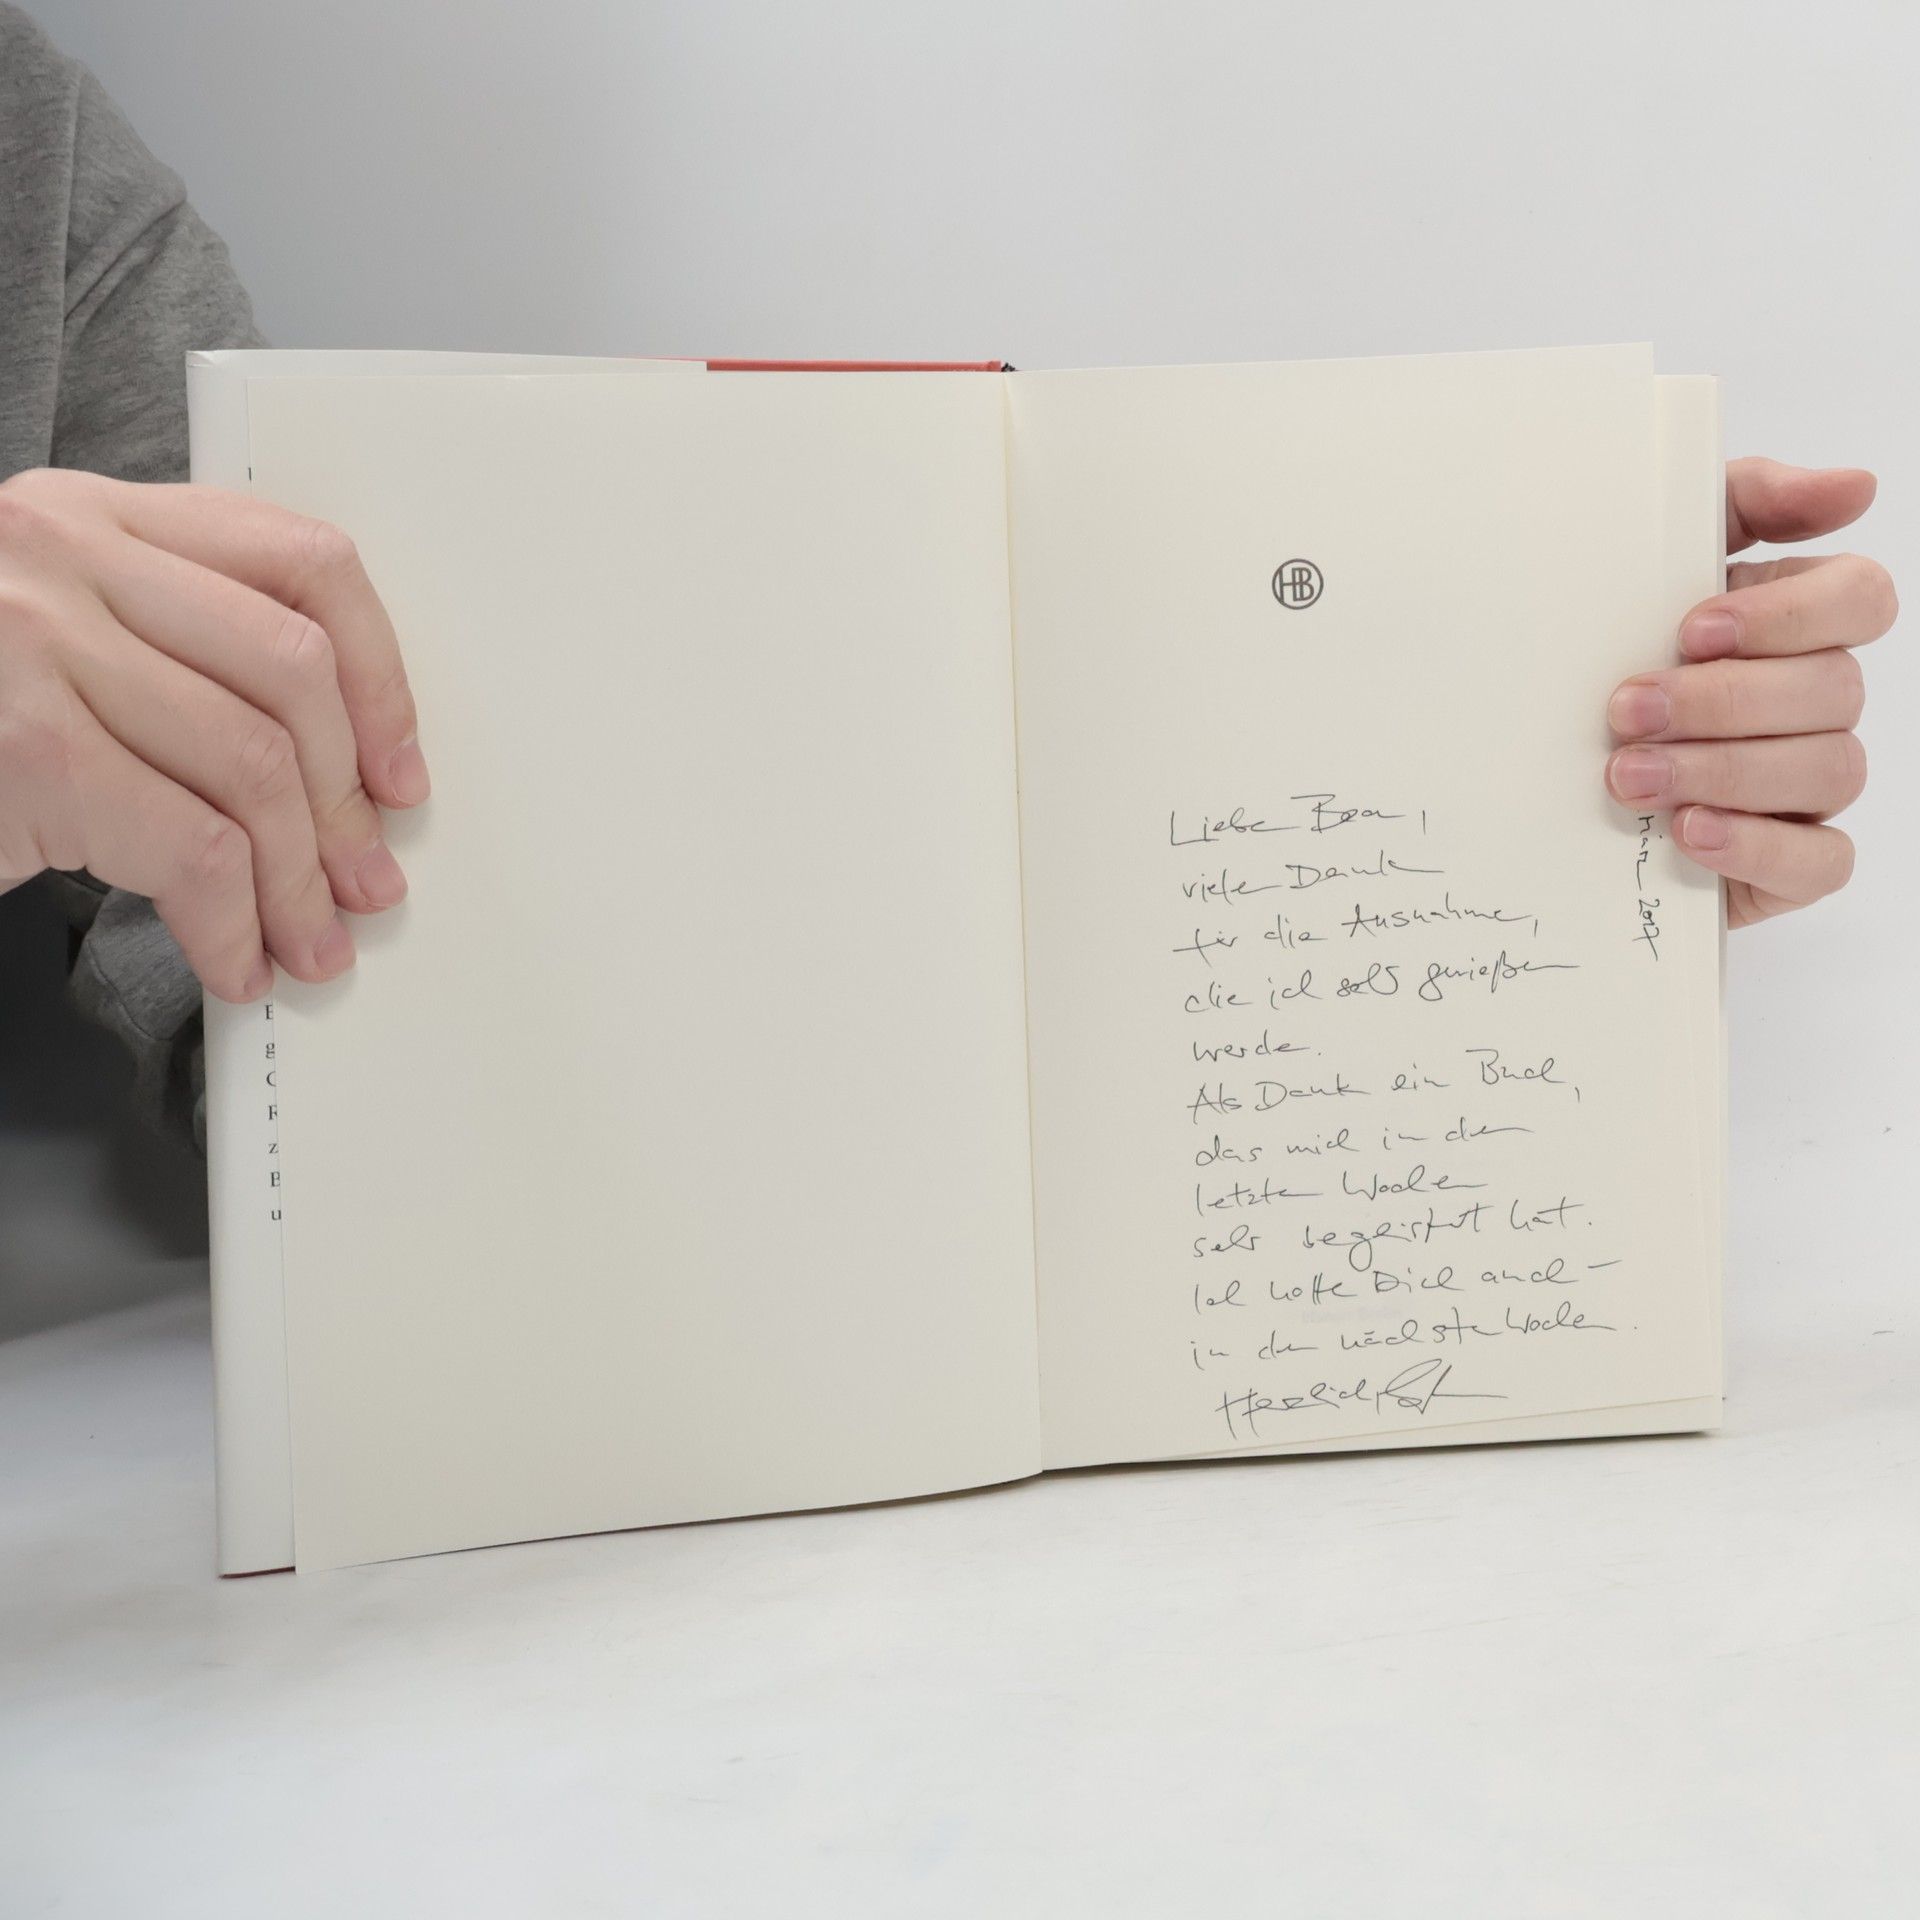 HB
Liebe Bea,
vielen Dank
für die Ausnahme,
die ich sehr genießen
werde.
Als Dank ein Buch,
das mich in den
letzten Wochen
sehr begeistert hat.
Ich hoffe Dich auch –
in den nächsten Wochen.
Herzlich,
2017
E
g
C
R
z
B
u